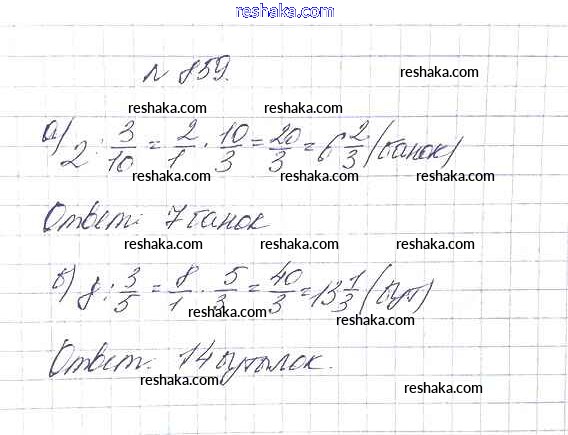 reshaka.com
№ 859.
reshaka.com
reshaka.com reshaka.com
а) 2 : 3/10 = 2/1 · 10/3 = 20/3 = 6 2/3 (банок)
reshaka.com reshaka.com reshaka.com
Ответ: 7 банок
reshaka.com reshaka.com
б) 8 : 3/5 = 8/1 · 5/3 = 40/3 = 13 1/3 (бут)
reshaka.com reshaka.com
Ответ: 14 бутылок.
reshaka.com reshaka.com